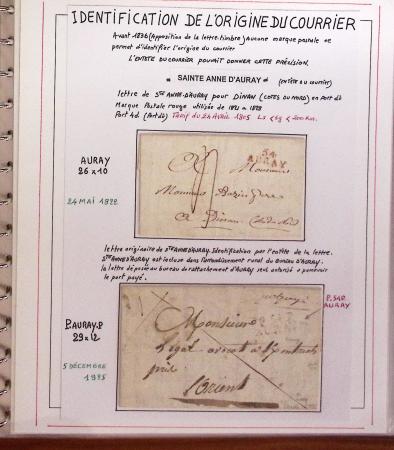 IDENTIFICATION DE L'ORIGINE DU COURRIER
Avant 1836 (Apposition de la lettre-timbre) Aucune marque postale ne
permet d'identifier l'origine du courrier
L'ENTETE DU COURRIER POUVAIT DONNER CETTE PRÉCISION.
* SAINTE ANNE D'AURAY * (ENTÊTE DU COURRIER)
lettre de STE ANNE-D'AURAY pour DINAN (COTES DU NORD) en Port dû
Marque Postale rouge utilisée de 1821 à 1828
Port dû. Tarif du 24 Avril 1805
AURAY
26 x 10
24 MAI 1822
54
AURAY
Monsieur
Monsieur
à Dinan
lettre originaire de STE ANNE D'AURAY. Identification par l'entête de la lettre.
STE ANNE D'AURAY est incluse dans l'arrondissement rural du BUREAU D'AURAY.
la lettre déposée au bureau de rattachement d'AURAY seul autorisé à percevoir
le port payé.
P.AURAY.P
29 x 12
5 DÉCEMBRE
P.54.P
AURAY
Monsieur
Legal avocat
près
l'Orient